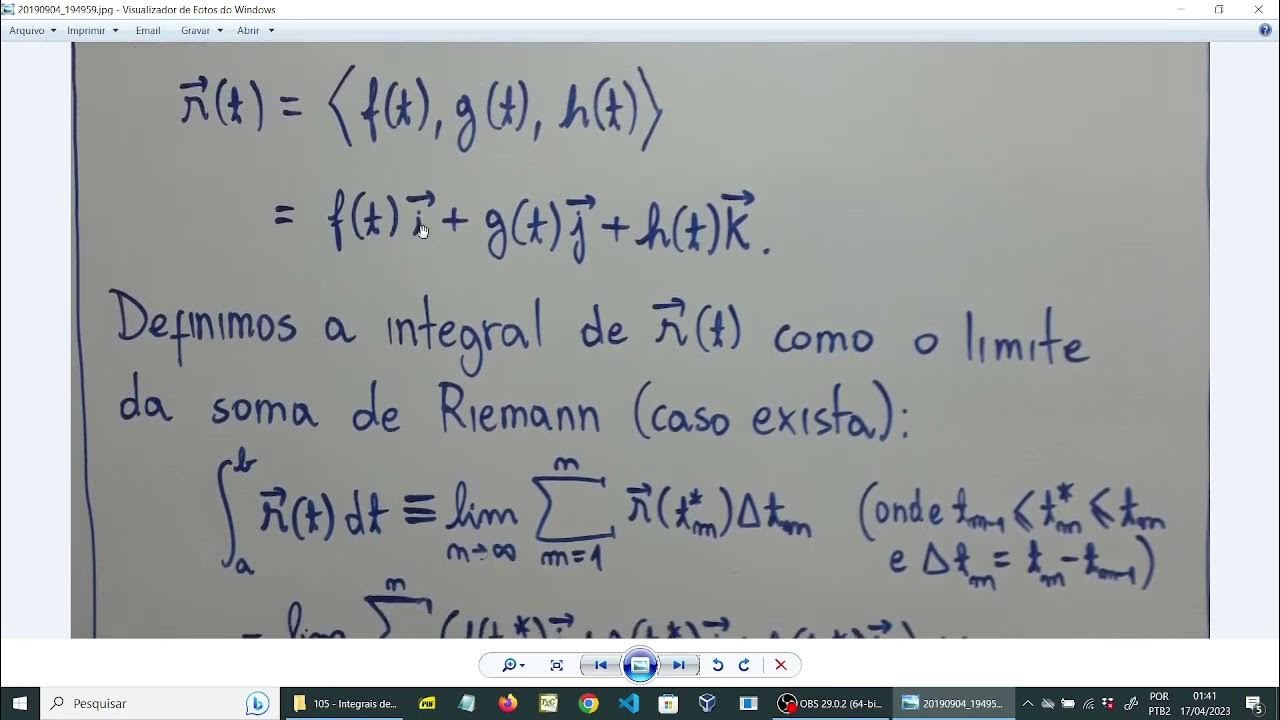 20190904_194959.jpg - Visualizador de Fotos do Windows
Arquivo Imprimir Email Gravar Abrir
r⃗(t) = ⟨f(t), g(t), h(t)⟩
= f(t)i⃗ + g(t)j⃗ + h(t)k⃗.
Definimos a integral de r⃗(t) como o limite
da soma de Riemann (caso exista):
∫_a^b r⃗(t) dt ≡ lim_{n→∞} ∑_{m=1}^{n} r⃗(t_m^*) Δt_m (onde t_{m-1} ≤ t_m^* ≤ t_m
e Δt_m = t_m - t_{m-1})
Pesquisar
105 - Integrais de...
OBS 29.0.2 (64-bi...
20190904_19495...
POR
PTB2
01:41
17/04/2023